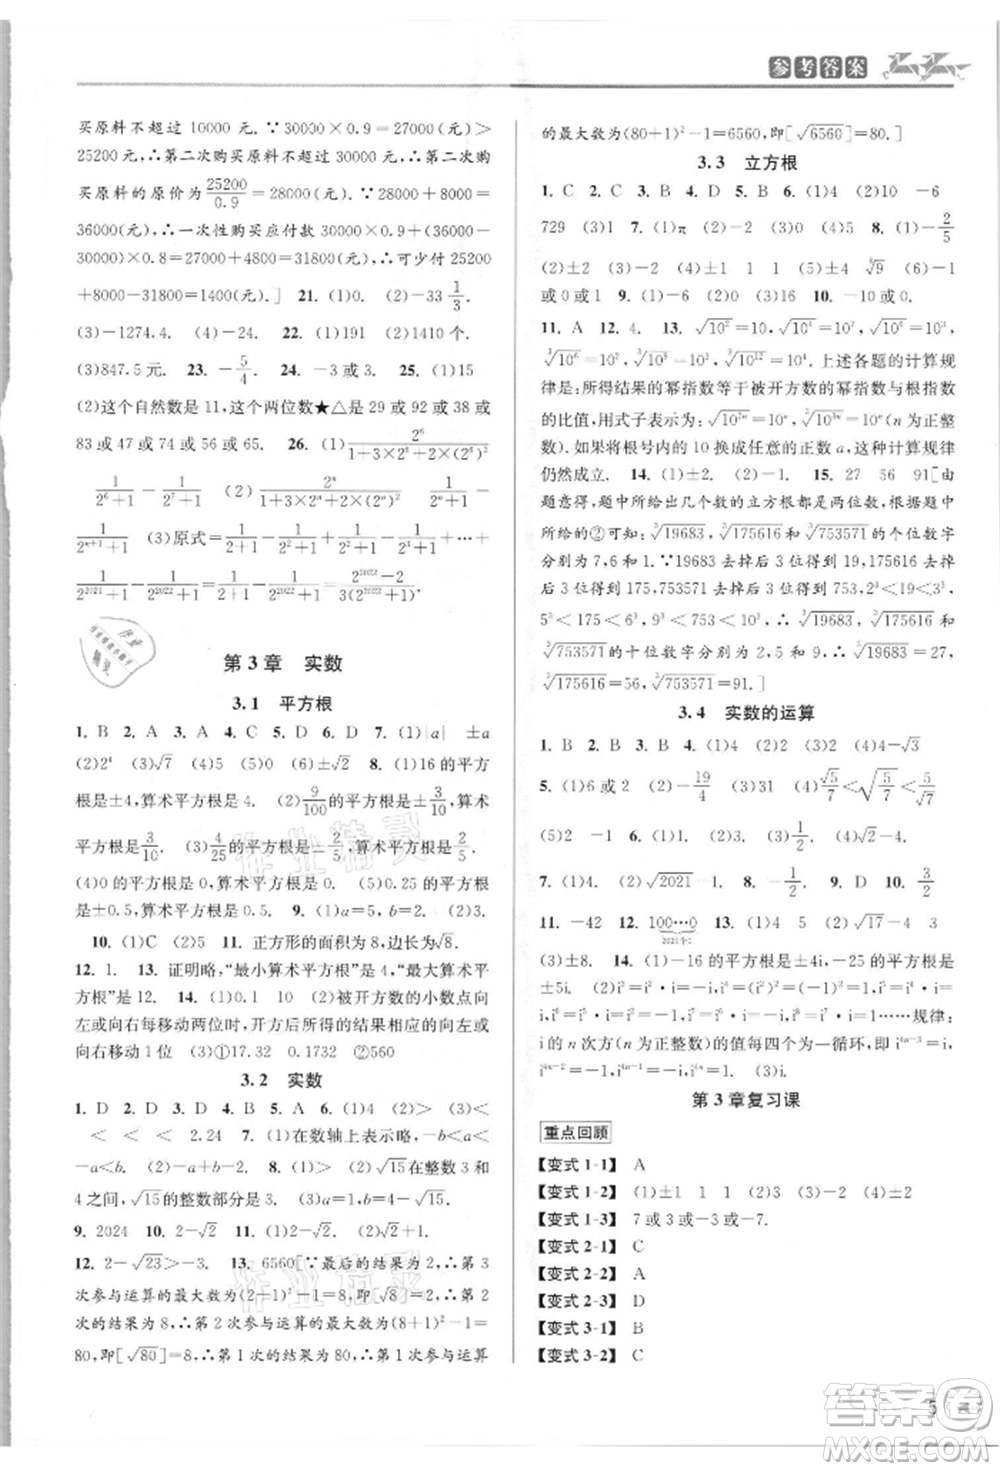 参考答案
买原料不超过 10000 元. ∵30000×0.9=27000(元)>
25200 元,∴第二次购买原料不超过 30000 元,∴第二次购
买原料的原价为25200/0.9=28000(元). ∵28000+8000=
36000(元),∴一次性购买应付款 30000×0.9+(36000-
30000)×0.8=27000+4800=31800(元),∴可少付 25200
+8000-31800=1400(元).] 21. (1)0. (2)-33 1/3.
(3)-1274.4. (4)-24. 22. (1)191 (2)1410 个.
(3)847.5 元. 23. -5/4. 24. -3 或 1. 25. (1)15
(2)这个自然数是 11,这个两位数★△是 29 或 92 或 38 或
83 或 47 或 74 或 56 或 65. 26. (1)2⁶/(1+3×2⁶+2×(2⁶)²)
1/(2⁶+1)-1/(2⁷+1) (2)2ⁿ/(1+3×2ⁿ+2×(2ⁿ)²)=1/(2ⁿ+1)-
1/(2ⁿ⁺¹+1) (3)原式=1/(2+1)-1/(2²+1)+1/(2²+1)-1/(2³+1)+…+
1/(2²⁰²¹+1)-1/(2²⁰²²+1)=1/(2+1)-1/(2²⁰²²+1)=(2²⁰²²-2)/(3(2²⁰²²+1)).
第 3 章 实数
3.1 平方根
1. B 2. A 3. A 4. C 5. D 6. D 7. (1)|a| ±a
(2)2⁴ (3)√7 (4)√5 或√13 8. (1)16 的平方根
是±4,算术平方根是4. (2)9/100的平方根是±3/10,算术
平方根是3/10. (3)4/25的平方根是±2/5,算术平方根是2/5.
(4)0 的平方根是 0,算术平方根是 0. (5)0.25 的平方根是
±0.5,算术平方根是 0.5. 9. (1)a=5,b=2. (2)3.
10. (1)C (2)5 11. 正方形的面积为 8,边长为√8.
12. 1. 13. 证明略,“最小算术平方根”是 4,“最大算术平
方根”是 12. 14. (1)0.1 10 (2)被开方数的小数点向
左或向右每移动两位时,开方后所得的结果相应的向左或
向右移动 1 位 (3)①17.32 0.1732 ②560
3.2 实数
1. D 2. C 3. D 4. C 5. B 6. (1)> (2)> (3)<
< < < 2.24 7. (1)在数轴上表示略,-b<a<
-a<b. (2)-a<b. 8. (1)> (2)∵√15在整数 3 和
4 之间,∴√15的整数部分是 3. (3)<
9. 2024 10. 2-√2 11. (1)2-√2. (2)√2+1.
12. 2-√23>-√3. 13. 6560[∵最后的结果为 1,∴第 3
次参与运算的最大数为(2-1+1)²-1=3,即[√3]=1,∴第 2
次的结果为 8,∴第 2 次参与运算的最大数为(8+1)²-1=
80,即[√80]=8,∴第 1 次的结果为 80,∴第 1 次参与运算
的最大数为(80+1)²-1=6560,即[√6560]=80.]
3.3 立方根
1. C 2. C 3. B 4. D 5. B 6. (1)4 (2)10 -6
729 (3)1 7. (1)π (2)2 (3)0 8. (1)-2/5
(2)±2 (3)-2 1 1 (4)±2 (5)∛9 (6)-1
或 0 或 1 9. (1)-6 (2)3 (3)16 10. -6 或 0.
11. A 12. 4. 13. √10²=10,√10⁴=10²,√10⁶=10³,
∛10⁶=10²,∛10⁹=10³,∛10¹²=10⁴. 上述各题的计算规
律是:所得结果的幂指数等于被开方数的幂指数与根指数
的比值,用式子表示为:√10²ⁿ=10ⁿ,∛10³ⁿ=10ⁿ(n 为正整
数). 如果将根号内的 10 换成任意的正数 a,这种计算规律
仍然成立. 14. (1)< (2)> (3)> 15. 27 56 91[由
题意得,题中所给出几个数的立方根是两位数,根据题中
所给的②可知:∛19683,∛175616,∛753571的个位数字
分别为 7,6,1. ∵19683 去掉后 3 位得到 19,175616 去掉后
3 位得到 175,753571 去掉后 3 位得到 753,2³<19<3³,
5³<175<6³,9³<753<10³,∴∛19683,∛175616,
∛753571的十位数字分别为 2,5,9,∴∛19683=27,
∛175616=56,∛753571=91.]
3.4 实数的运算
1. B 2. B 3. C 4. (1)4 (2)2 (3)2 (4)4-√3
5. (1)2 (2)-19/4 (3)31 (4)√5/7<√(5/7)<5/√7
(5)2 -1 6. (1)1. (2)3. (3)1/2. (4)√2-4.
7. (1)4 (2)√2021 8. -1/2. 9. D 10. (1)6. (2)3/2.
11. -42 12. 100…0(2021个0) 13. (1)4 (2)√17-4 3
(3)±8. 14. (1)-16 的平方根是±4i,-25 的平方根是
±5i. (2)i³=i²·i=-i,i⁴=i³·i=1,i⁵=i⁴·i=
i,i⁶=i⁵·i=-1,i⁷=i⁶·i=-i,i⁸=i⁷·i=1,…规律:
i 的 n 次方(n 为正整数)的值每四个为一循环,即 i⁴ⁿ⁻³=i,
i⁴ⁿ⁻²=-1,i⁴ⁿ⁻¹=-i,i⁴ⁿ=1. (3)i.
第 3 章复习课
重点回顾
【变式 1-1】 A
【变式 1-2】 (1)±1 1 1 (2)< (3)2 (4)±2
【变式 1-3】 7 或 3 或-3 或-7.
【变式 2-1】 C
【变式 2-2】 A
【变式 2-3】 D
【变式 3-1】 B
【变式 3-2】 C
作业精灵
作业精灵
答案圈
MXQE.COM